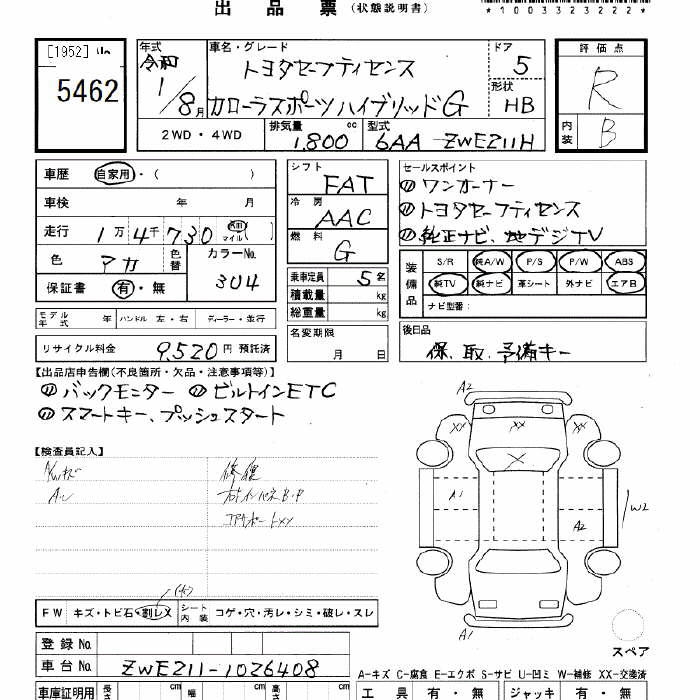 出品票（状態説明書）
*1003323222*
[1952]
5462
年式
令和
1/8月
車名・グレード
トヨタセーフティセンス
カローラスポーツハイブリッドG
ドア
5
形状
HB
2WD・4WD
排気量
1,800 cc
型式
6AA-ZWE211H
評価点
R
内装
B
車歴 自家用・( )
車検 年 月
走行 1万4千730 Km マイル
色 アカ 色替
カラーNo.
3U4
保証書 有・無
モデル年式 年 ハンドル 左・右 ディーラー・並行
リサイクル料金 9,520円 預託済
シフト
FAT
冷房
AAC
燃料
G
乗車定員 5名
積載量 kg
総重量 kg
名変期限
月 日
セールスポイント
〃ワンオーナー
〃トヨタセーフティセンス
〃純正ナビ、地デジTV
装備品
S/R 純A/W P/S P/W ABS
純TV 純ナビ 革シート 外ナビ エアB
ナビ型番：
後日品
保、取、予備キー
【出品店申告欄(不良箇所・欠品・注意事項等)】
〃バックモニター 〃ビルトインETC
〃スマートキー、プッシュスタート
【検査員記入】
A/Wキズ
修復
コアサポートXX
FW キズ・トビ石・割レX
シート内装 コゲ・穴・汚レ・シミ・破レ・スレ
A2
XX XX XX
X
A1
A2
W2
A1
スペア
登録No.
車台No. ZWE211-1026408
A-キズ C-腐食 E-エクボ S-サビ U-凹ミ W-補修 XX-交換済
車庫証明用 長さ cm 幅 cm 高さ cm
工具 有・無 ジャッキ 有・無